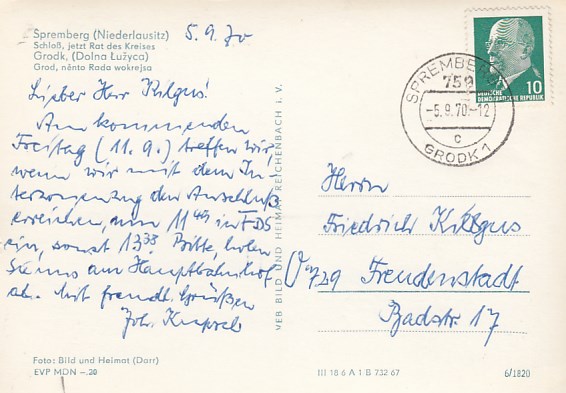 Spremberg (Niederlausitz)
Schloß, jetzt Rat des Kreises
Grodk, (Dolna Łužyca)
Grod, něnto Rada wokrejsa
5.9.70
Lieber Herr Kilgus!
Am kommenden
Freitag (11.9.) treffen wir,
wenn wir mit dem In-
terzonenzug den Anschluß
erreichen, um 11 49 in FDS
ein, sonst 13 38 Bitte, holen
Sie uns am Hauptbahnhof
ab. Mit freundl. Grüßen
Joh.
Foto: Bild und Heimat (Darr)
EVP MDN –.20
VEB BILD UND HEIMAT REICHENBACH i. V.
SPREMBERG
759
-5.9.70.-12
c
GRODK 1
10
DEUTSCHE
DEMOKRATISCHE REPUBLIK
Herrn
Friedrich Kilgus
729 Freudenstadt
Badstr. 17
III 18 6 A 1 B 732 67
6/1820